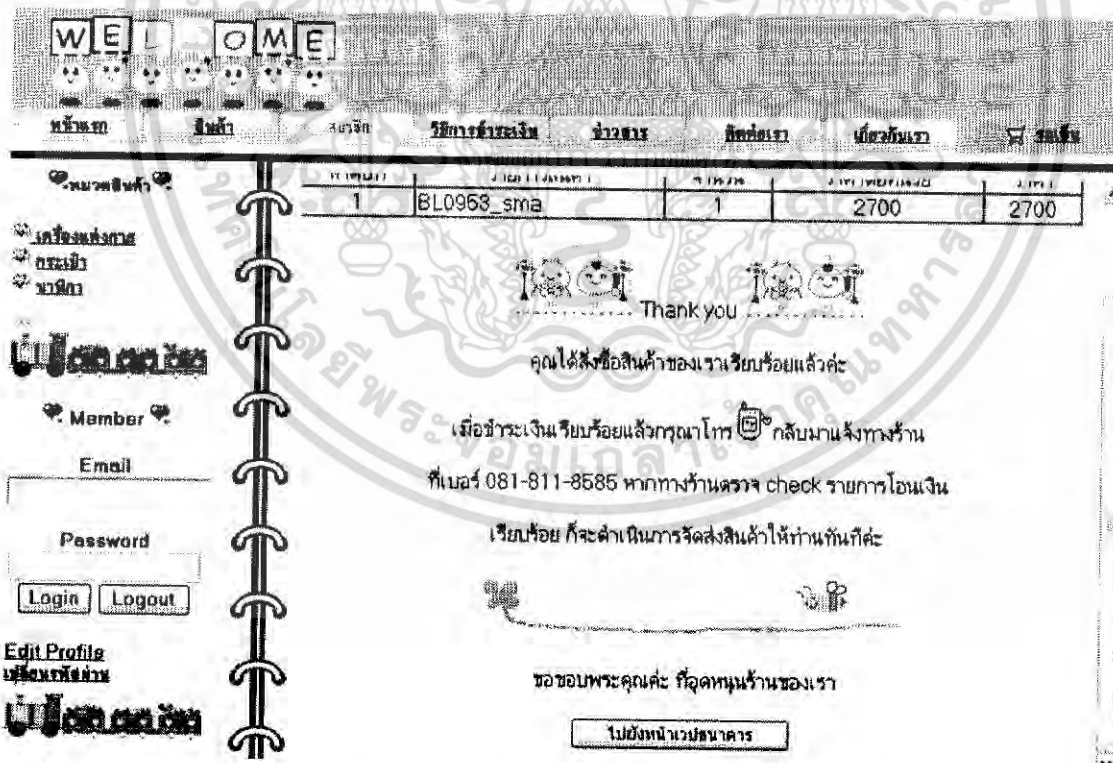 WEL OME
หน้าแรก สินค้า สมาชิก วิธีการชำระเงิน ข่าวสาร ติดต่อเรา เกี่ยวกับเรา รถเข็น
หมวดสินค้า
เครื่องแต่งกาย
กระเป๋า
นาฬิกา
Member
Email
Password
Login Logout
Edit Profile
เปลี่ยนรหัสผ่าน
1 BL0953_sma 1 2700 2700
Thank you
คุณได้สั่งซื้อสินค้าของเราเรียบร้อยแล้วค่ะ
เมื่อชำระเงินเรียบร้อยแล้วกรุณาโทร กลับมาแจ้งทางร้าน
ที่เบอร์ 081-811-8585 หากทางร้านตรวจ check รายการโอนเงิน
เรียบร้อย ก็จะดำเนินการจัดส่งสินค้าให้ท่านทันทีค่ะ
ขอขอบพระคุณค่ะ ที่อุดหนุนร้านของเรา
ไปยังหน้าเวปธนาคาร